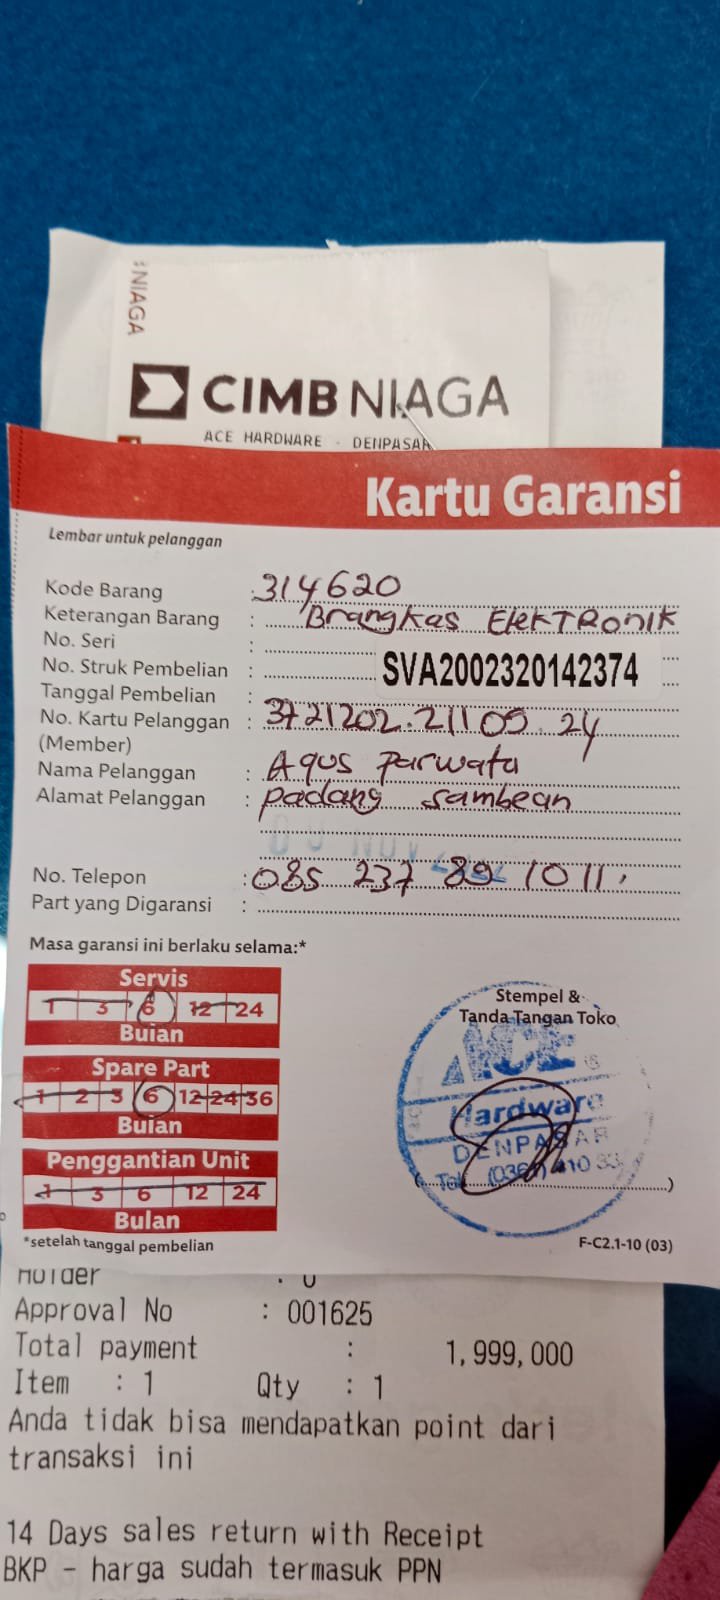 NIAGA
CIMB NIAGA
ACE HARDWARE - DENPASAR
Kartu Garansi
Lembar untuk pelanggan
Kode Barang : 314620
Keterangan Barang : Brangkas ElekTRonik
No. Seri :
No. Struk Pembelian : SVA2002320142374
Tanggal Pembelian :
No. Kartu Pelanggan : 3721202.21109.24
(Member)
Nama Pelanggan : Agus parwata
Alamat Pelanggan : padang sambean
NOV
No. Telepon : 085 237 89 1011
Part yang Digaransi :
Masa garansi ini berlaku selama:*
Servis
1 3 6 12 24
Bulan
Spare Part
1 2 3 6 12 24 36
Bulan
Penggantian Unit
1 3 6 12 24
Bulan
*setelah tanggal pembelian
Stempel &
Tanda Tangan Toko
ACE
Hardware
DENPASAR
F-C2.1-10 (03)
Holder : 0
Approval No : 001625
Total payment : 1,999,000
Item : 1 Qty : 1
Anda tidak bisa mendapatkan point dari
transaksi ini
14 Days sales return with Receipt
BKP - harga sudah termasuk PPN